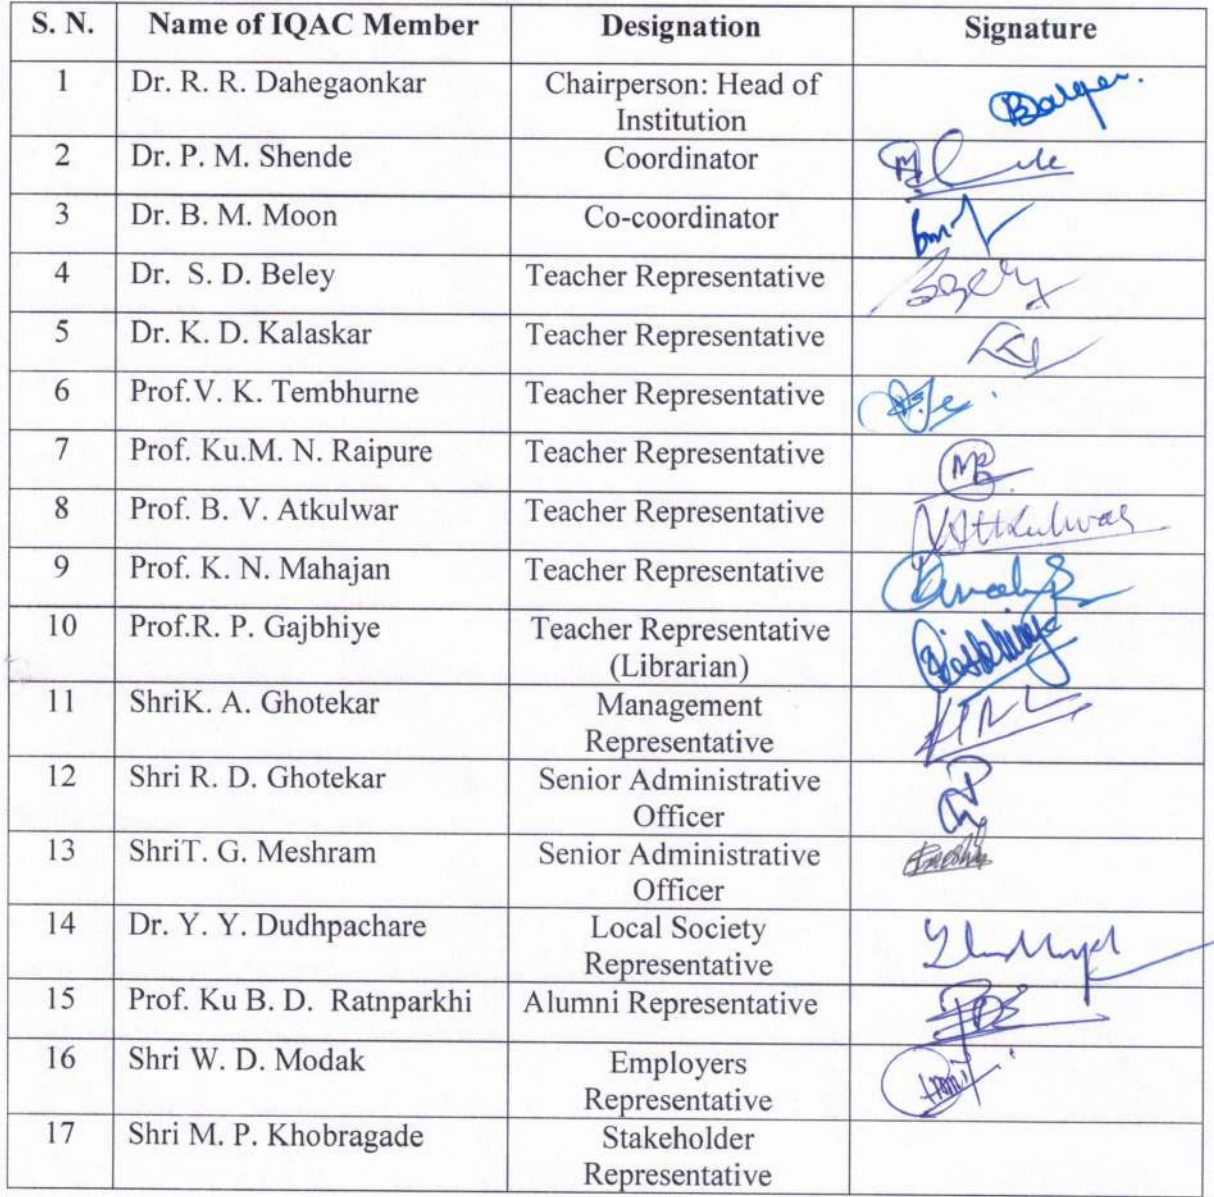 S. N. Name of IQAC Member Designation Signature
1 Dr. R. R. Dahegaonkar Chairperson: Head of
Institution
2 Dr. P. M. Shende Coordinator
3 Dr. B. M. Moon Co-coordinator
4 Dr. S. D. Beley Teacher Representative
5 Dr. K. D. Kalaskar Teacher Representative
6 Prof.V. K. Tembhurne Teacher Representative
7 Prof. Ku.M. N. Raipure Teacher Representative
8 Prof. B. V. Atkulwar Teacher Representative
9 Prof. K. N. Mahajan Teacher Representative
10 Prof.R. P. Gajbhiye Teacher Representative
(Librarian)
11 ShriK. A. Ghotekar Management
Representative
12 Shri R. D. Ghotekar Senior Administrative
Officer
13 ShriT. G. Meshram Senior Administrative
Officer
14 Dr. Y. Y. Dudhpachare Local Society
Representative
15 Prof. Ku B. D. Ratnparkhi Alumni Representative
16 Shri W. D. Modak Employers
Representative
17 Shri M. P. Khobragade Stakeholder
Representative